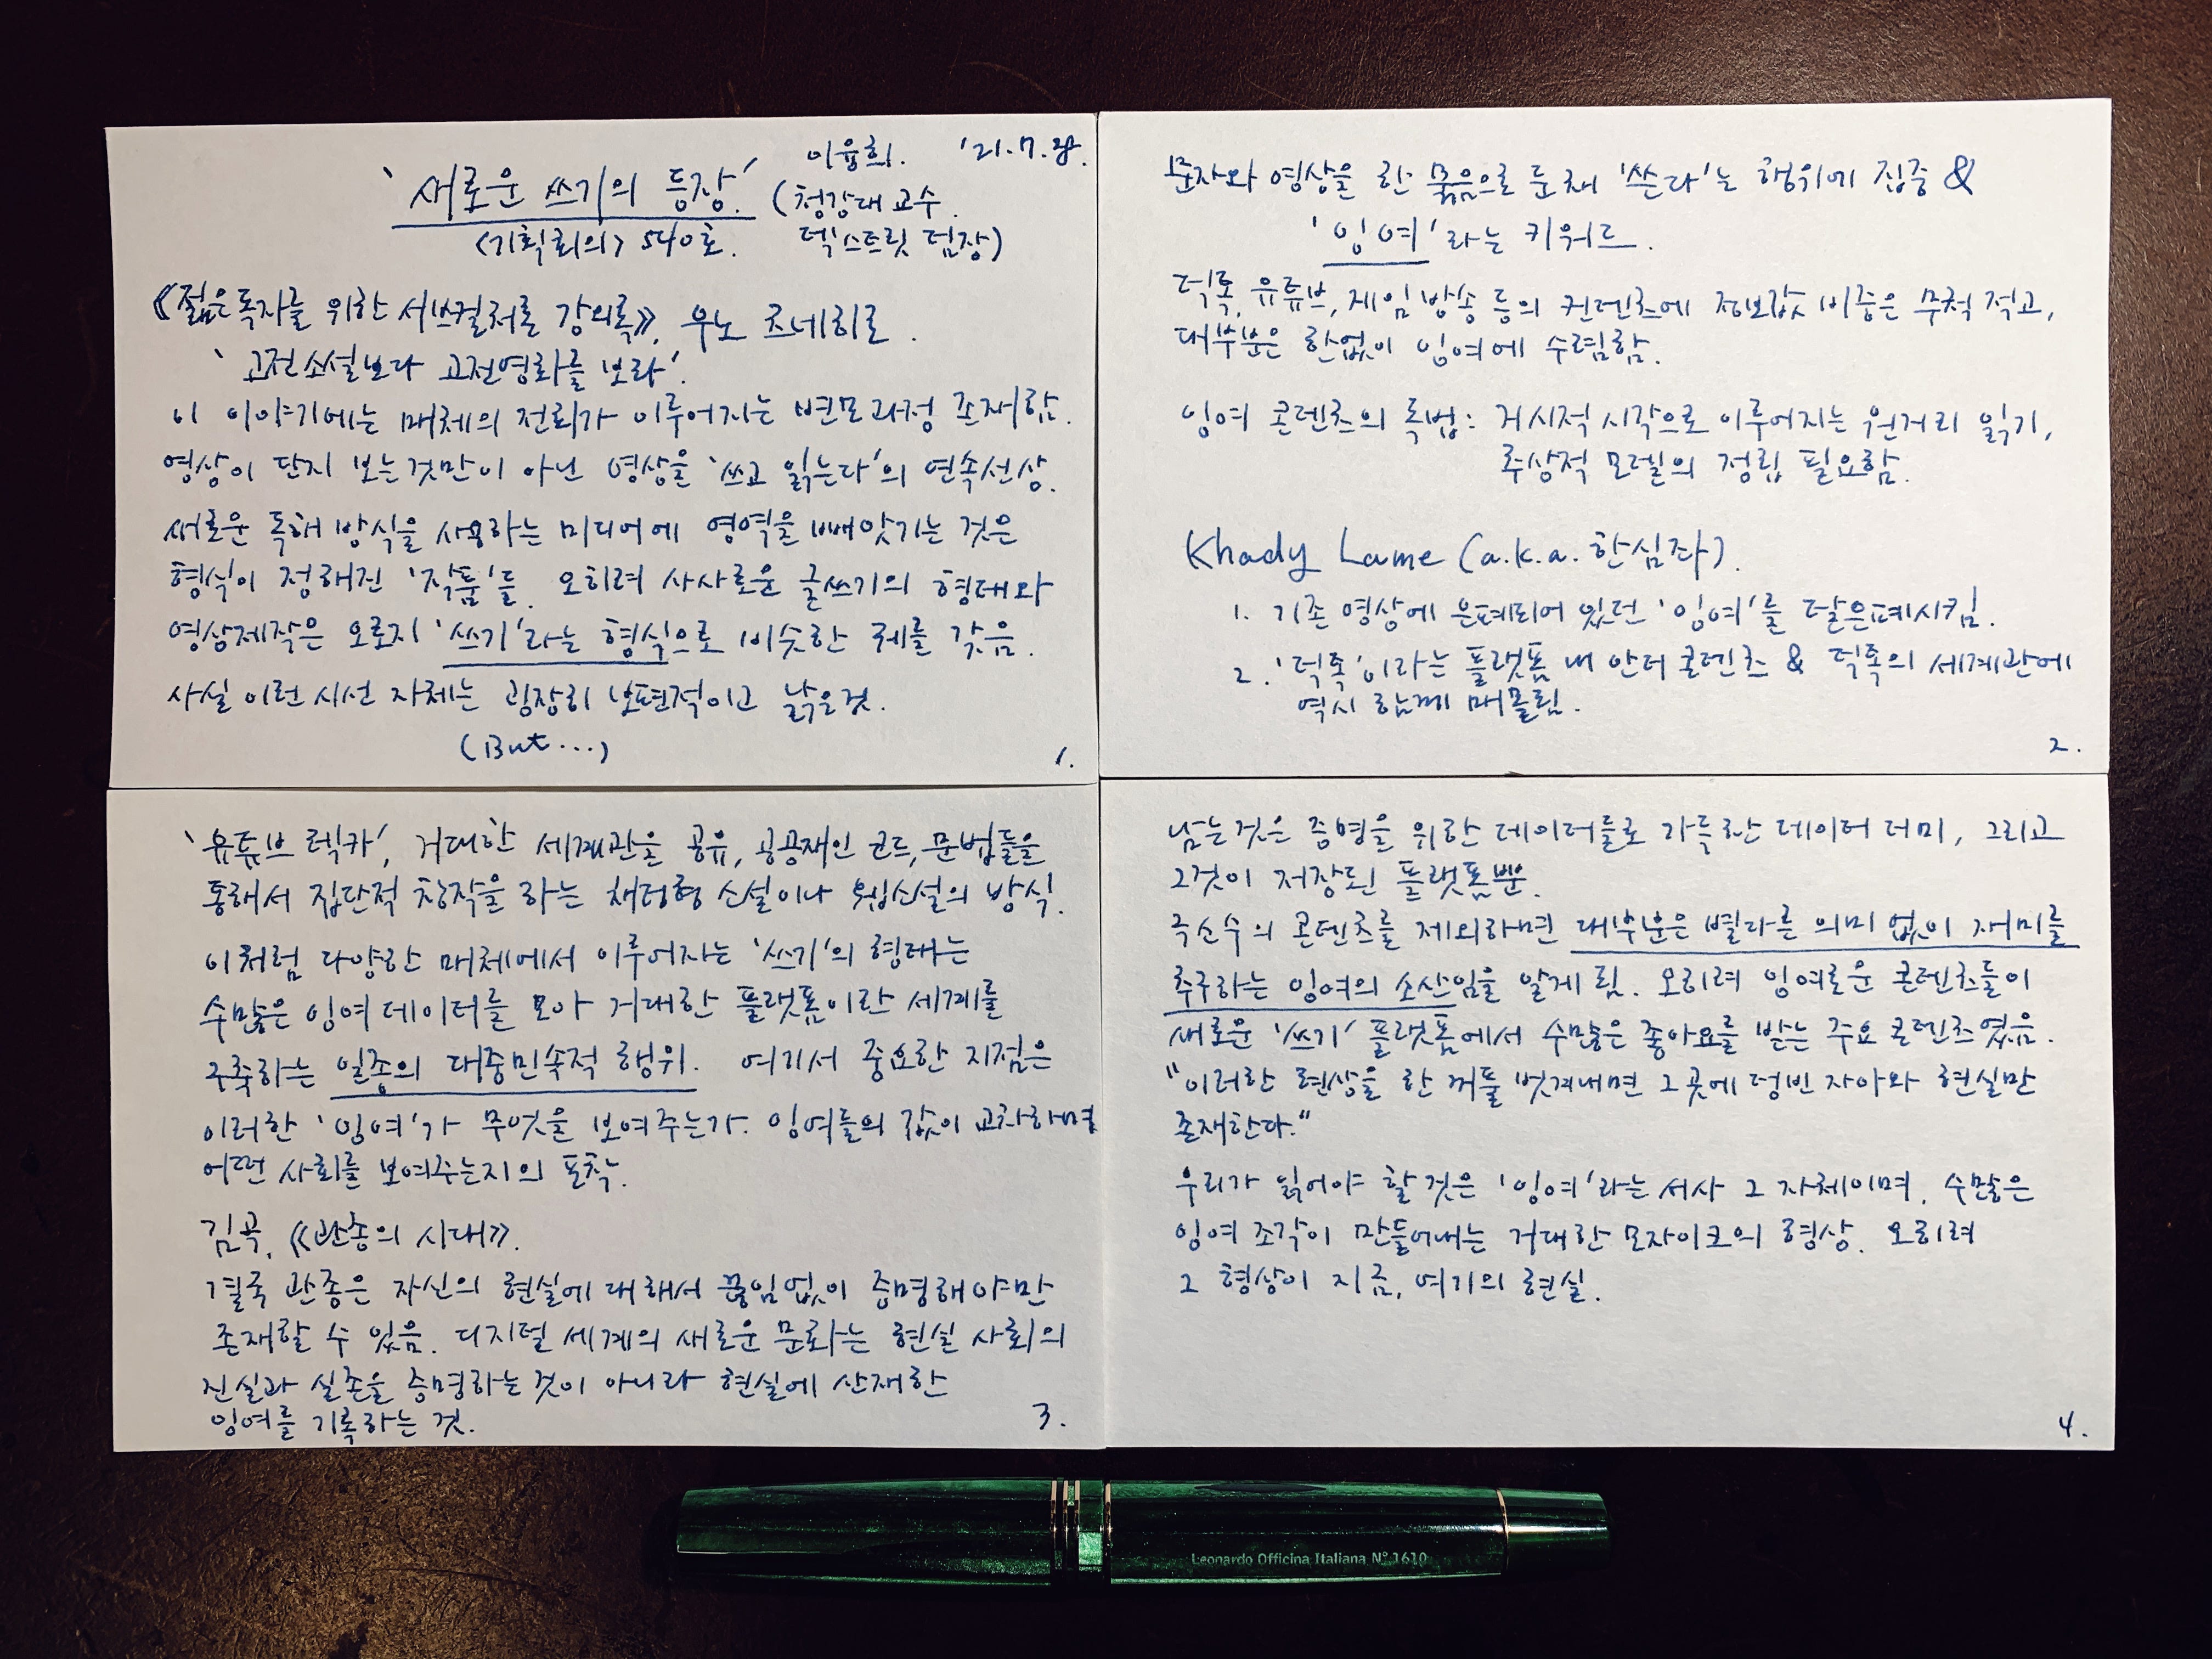 이융희. '21.7.28.
'새로운 쓰기의 등장' (청강대 교수.
<기획회의> 540호. 텍스트릿 팀장)
《젊은독자를 위한 서브컬처론 강의록》, 우노 츠네히로.
'고전소설보다 고전영화를 보라'.
이 이야기에는 매체의 전회가 이루어지는 변모과정 존재함.
영상이 단지 보는것만이 아닌 영상을 '쓰고 읽는다'의 연속선상.
새로운 독해 방식을 사용하는 미디어에 영역을 빼앗기는 것은
형식이 정해진 '작품'들. 오히려 사사로운 글쓰기의 형태와
영상제작은 오로지 '쓰기'라는 형식으로 비슷한 궤를 갖음.
사실 이런 시선 자체는 굉장히 보편적이고 낡은것.
(But...)
1.
문자와 영상을 한 묶음으로 둔채 '쓴다'는 행위에 집중 &
'잉여'라는 키워드.
틱톡, 유튜브, 게임방송 등의 컨텐츠에 정보값 비중은 무척 적고,
대부분은 한없이 잉여에 수렴함.
잉여 콘텐츠의 독법: 거시적 시각으로 이루어지는 원거리 읽기,
추상적 모델의 정립 필요함.
Khady Lame (a.k.a. 한심좌).
1. 기존 영상에 은폐되어 있던 '잉여'를 탈은폐시킴.
2. '틱톡'이라는 플랫폼 내 안티 콘텐츠 & 틱톡의 세계관에
역시 함께 매몰됨.
2.
'유튜브 렉카', 거대한 세계관을 공유, 공공재인 코드, 문법들을
통해서 집단적 창작을 하는 채팅형 소설이나 웹소설의 방식.
이처럼 다양한 매체에서 이루어지는 '쓰기'의 형태는
수많은 잉여 데이터를 모아 거대한 플랫폼이란 세계를
구축하는 일종의 대중민속적 행위. 여기서 중요한 지점은
이러한 '잉여'가 무엇을 보여주는가. 잉여들의 값이 교차하며
어떤 사회를 보여주는지의 포착.
김곡, 《관종의 시대》.
결국 관종은 자신의 현실에 대해서 끊임없이 증명해야만
존재할 수 있음. 디지털 세계의 새로운 문화는 현실 사회의
진실과 실존을 증명하는 것이 아니라 현실에 산재한
잉여를 기록하는 것.
3.
남는것은 증명을 위한 데이터들로 가득찬 데이터 더미, 그리고
그것이 저장된 플랫폼뿐.
극소수의 콘텐츠를 제외하면 대부분은 별다른 의미 없이 재미를
추구하는 잉여의 소산임을 알게 됨. 오히려 잉여로운 콘텐츠들이
새로운 '쓰기' 플랫폼에서 수많은 좋아요를 받는 주요 콘텐츠였음.
"이러한 현상을 한 꺼풀 벗겨내면 그 곳에 텅빈 자아와 현실만
존재한다."
우리가 읽어야 할것은 '잉여'라는 서사 그 자체이며, 수많은
잉여 조각이 만들어내는 거대한 모자이크의 형상. 오히려
그 형상이 지금, 여기의 현실.
4.
Leonardo Officina Italiana N° 1610